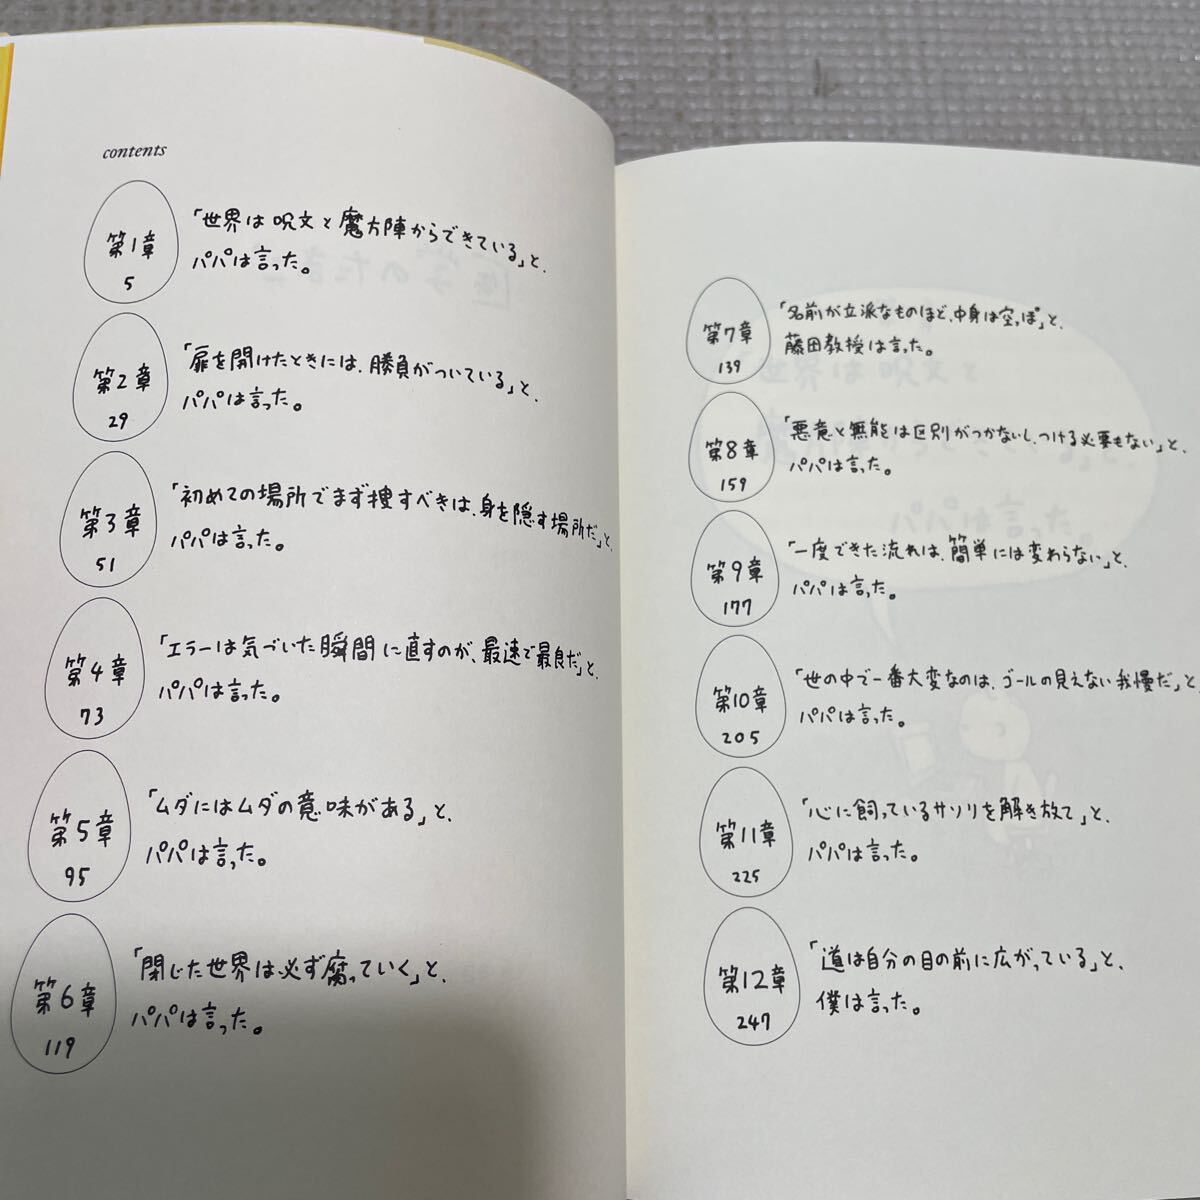 contents
第1章
5
「世界は呪文と魔方陣からできている」と、
パパは言った。
第2章
29
「扉を開けたときには、勝負がついている」と、
パパは言った。
第3章
51
「初めての場所でまず捜すべきは、身を隠す場所だ」と、
パパは言った。
第4章
73
「エラーは気づいた瞬間に直すのが、最速で最良だ」と、
パパは言った。
第5章
95
「ムダにはムダの意味がある」と、
パパは言った。
第6章
119
「閉じた世界は必ず腐っていく」と、
パパは言った。
第7章
139
「名前が立派なものほど、中身は空っぽ」と、
藤田教授は言った。
第8章
159
「悪意と無能は区別がつかないし、つける必要もない」と、
パパは言った。
第9章
177
「一度できた流れは、簡単には変わらない」と、
パパは言った。
第10章
205
「世の中で一番大変なのは、ゴールの見えない我慢だ」と、
パパは言った。
第11章
225
「心に飼っているサソリを解き放て」と、
パパは言った。
第12章
247
「道は自分の目の前に広がっている」と、
僕は言った。